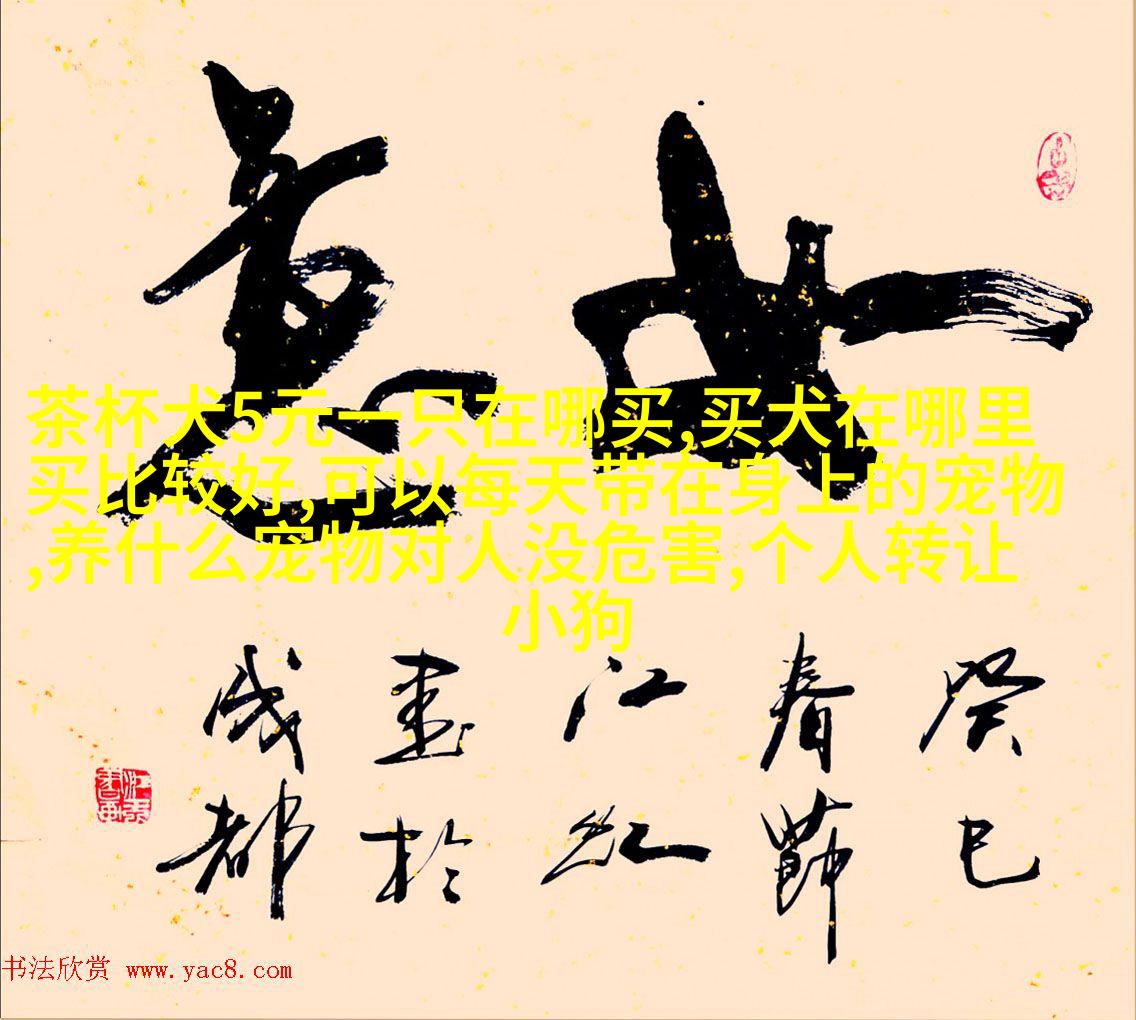 如意
茶杯犬5元一只在哪买,买犬在哪里
买比较好,可以每天带在身上的宠物
,养什么宠物对人没危害,个人转让
小狗
癸巳
春節
江红
書於
成都
书法欣赏 www.yac8.com